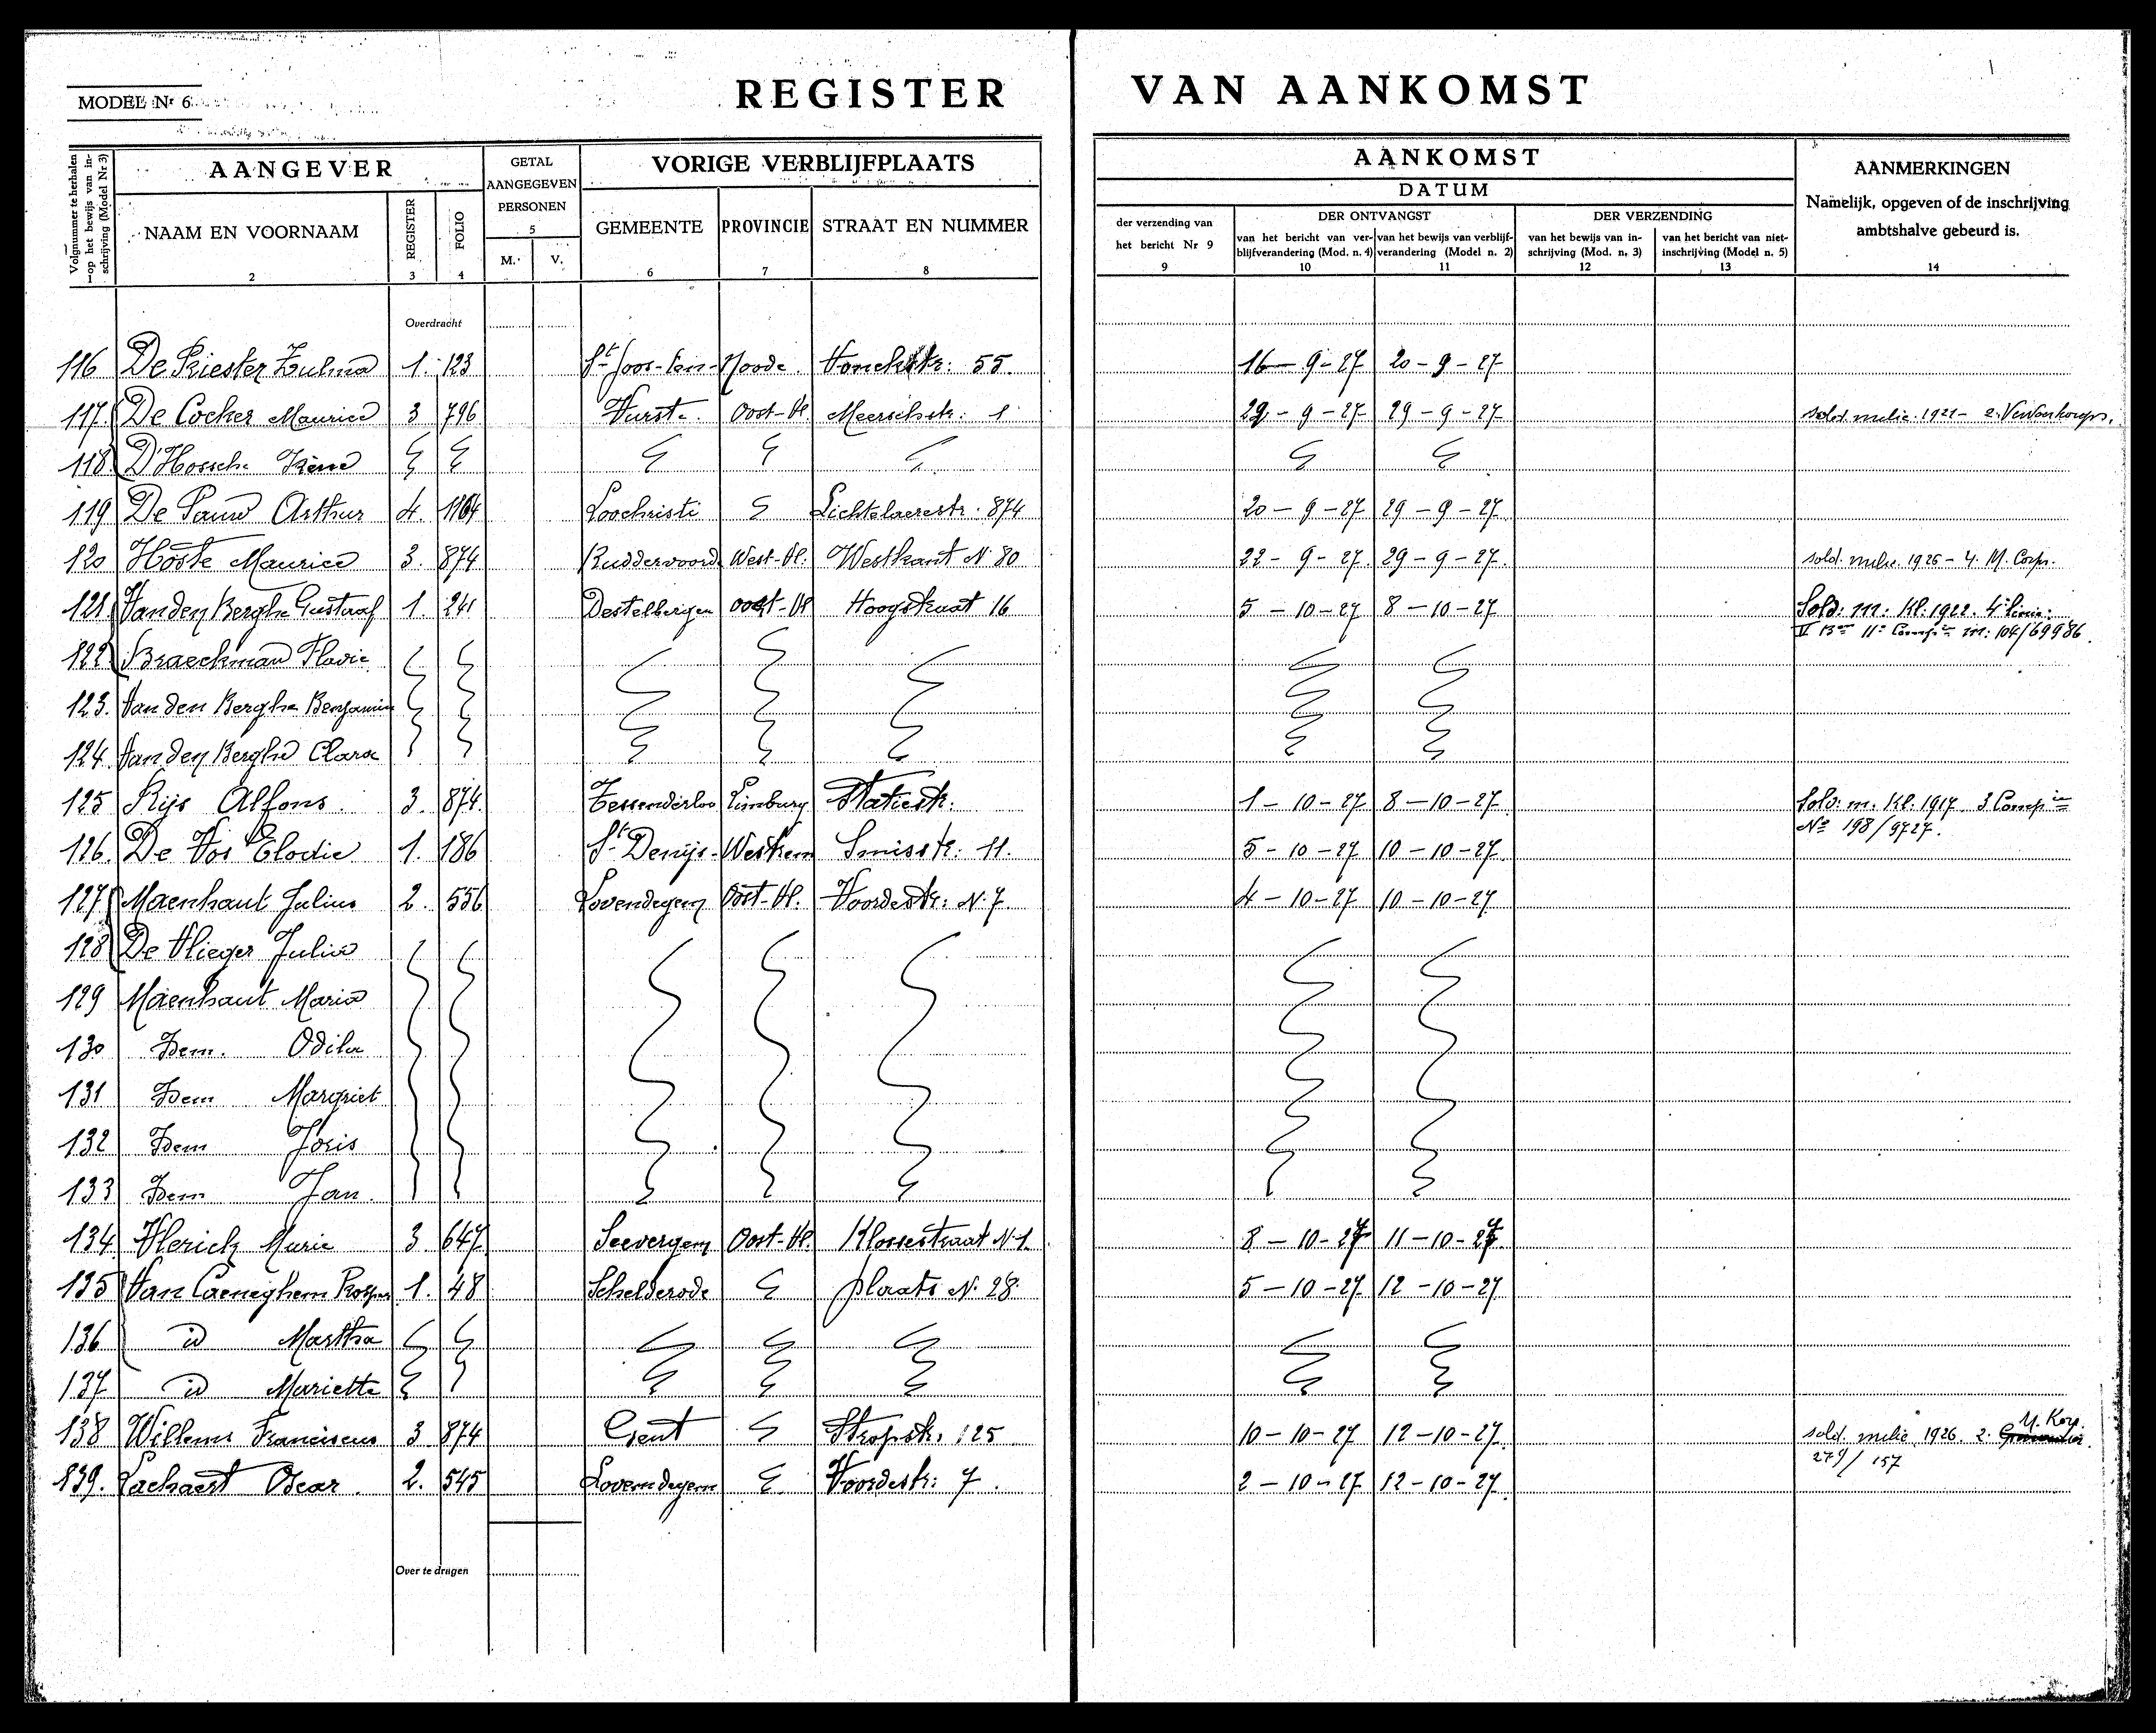 MODEL Nr 6
REGISTER VAN AANKOMST
Volgnummer te herhalen op het bewijs van inschrijving (Model Nr 3)
AANGEVER
NAAM EN VOORNAAM
2
REGISTER
3
FOLIO
4
GETAL
AANGEGEVEN
PERSONEN
5
M.
V.
VORIGE VERBLIJFPLAATS
GEMEENTE
6
PROVINCIE
7
STRAAT EN NUMMER
8
AANKOMST
DATUM
der verzending van
het bericht Nr 9
9
DER ONTVANGST
van het bericht van ver-
blijfverandering (Mod. n. 4)
10
van het bewijs van verblijf-
verandering (Model n. 2)
11
DER VERZENDING
van het bewijs van in-
schrijving (Mod. n. 3)
12
van het bericht van niet-
inschrijving (Model n. 5)
13
AANMERKINGEN
Namelijk, opgeven of de inschrijving
ambtshalve gebeurd is.
14
Overdracht
116 De Priester Zulma 1. 123 St Joos-ten-Noode. 55. 16-9-27 20-9-27
117. De Cocker Maurice 3 796 Vurste. Oost-Vl. Meerschstr: 1 29-9-27 29-9-27 sold. milic. 1921- 2.
118. D'Hossche Irène
119 De Pauw Arthur 4. 1164 Loochristi Lichtelaerestr. 874 20-9-27 29-9-27
120 Hoste Maurice 3. 874 Ruddervoord West-Vl. Westkant N. 80 22-9-27 29-9-27 sold. milic. 1926 - 4. M. Corps.
121. Van den Berghe Gustaaf 1. 241 Destelbergen Oost-Vl Hoogstraat 16 5-10-27 8-10-27 Sold: m. Kl. 1922. 4e linie.
II Bon 11e Compie m. 104/69986.
122 Braeckman Flavie
123. Van den Berghe Benjamin
124. Van den Berghe Clara
125 Rijs Alfons. 3. 874. Tessenderloo Limburg Statiestr. 1-10-27 8-10-27 Sold: m. Kl. 1917 3 Compie
No 198/9727.
126. De Vos Elodie 1. 186 St Denijs-Westrem Smisstr: 11. 5-10-27 10-10-27
127 Maenhaut Julius 2. 556 Lovendegem Oost-Vl. Voordestr: N. 7 4-10-27 10-10-27
128 De Vlieger Julia
129 Maenhaut Maria
130 Idem. Odila
131 Idem Margriet
132 Idem Joris
133 Idem Jan.
134. Vlerick Marie 3. 647 Seevergem Oost-Vl. Klossestraat N. 1. 8-10-27 11-10-27
135 Van Caeneghem Prosper 1. 48 Schelderode plaats N. 28. 5-10-27 12-10-27
136 id Martha
137 id Mariette
138 Willems Franciscus 3 874 Gent Stropstr. 125 10-10-27 12-10-27 sold. milic. 1926. 2. M. Korp.
279/157
139. Lachaert Oscar. 2. 545 Lovendegem Voordestr: 7. 2-10-27 12-10-27
Over te dragen